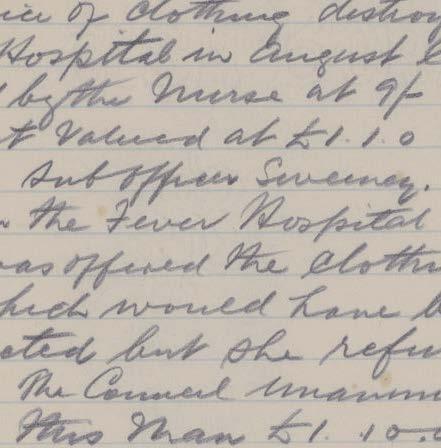 ice of clothing destroy
Hospital in August
by the Nurse at 9/-
t Valued at £1.1.0
Sub Officer Sweeney.
the Fever Hospital
was offered the clothi
hich would have b
cted but she refu
The Council unanim
this Man £1.10.0